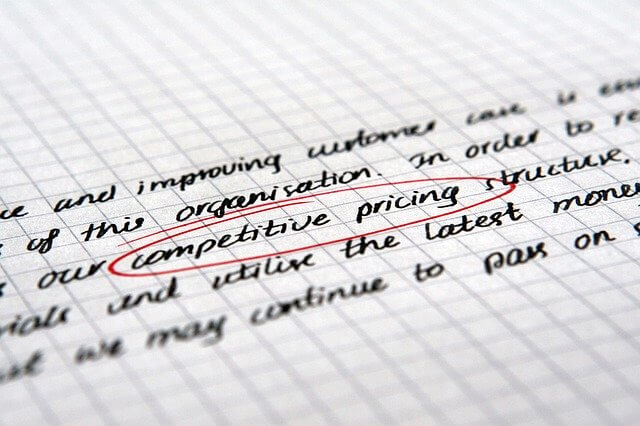 ce and improving customer care is
of this organisation. In order to re
our competitive pricing structure.
rials and utilise the latest money
we may continue to pass on